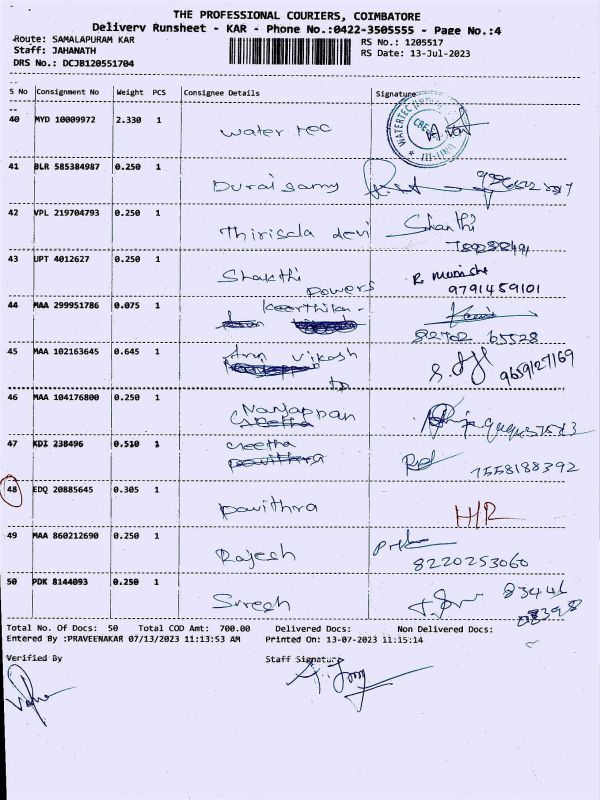 THE PROFESSIONAL COURIERS, COIMBATORE
Delivery Runsheet - KAR - Phone No.:0422-3505555 - Page No.:4
Route: SAMALAPURAM KAR RS No.: 1205517
Staff: JAHANATH RS Date: 13-Jul-2023
DRS No.: DCJB120551704
S No Consignment No Weight PCS Consignee Details Signature
40 MYD 10009972 2.330 1 water tec
41 BLR 585384987 0.250 1 Duraisamy
42 VPL 219704793 0.250 1 Thirisala devi Shanthi
43 UPT 4012627 0.250 1 Shakthi powers 9791459101
44 MAA 299951786 0.075 1 Keerthika 82702 65528
45 MAA 102163645 0.645 1 Arun vikash 9659127169
46 MAA 104176800 0.250 1 Nanjappan
47 KDI 238496 0.510 1 Geetha 7558188392
48 EDQ 20885645 0.305 1 pavithra H/R
49 MAA 860212690 0.250 1 Rajesh 8220253060
50 PDK 8144093 0.250 1 Suresh 83446
Total No. Of Docs: 50 Total COD Amt: 700.00 Delivered Docs: Non Delivered Docs:
Entered By :PRAVEENAKAR 07/13/2023 11:13:53 AM Printed On: 13-07-2023 11:15:14
Verified By Staff Signature